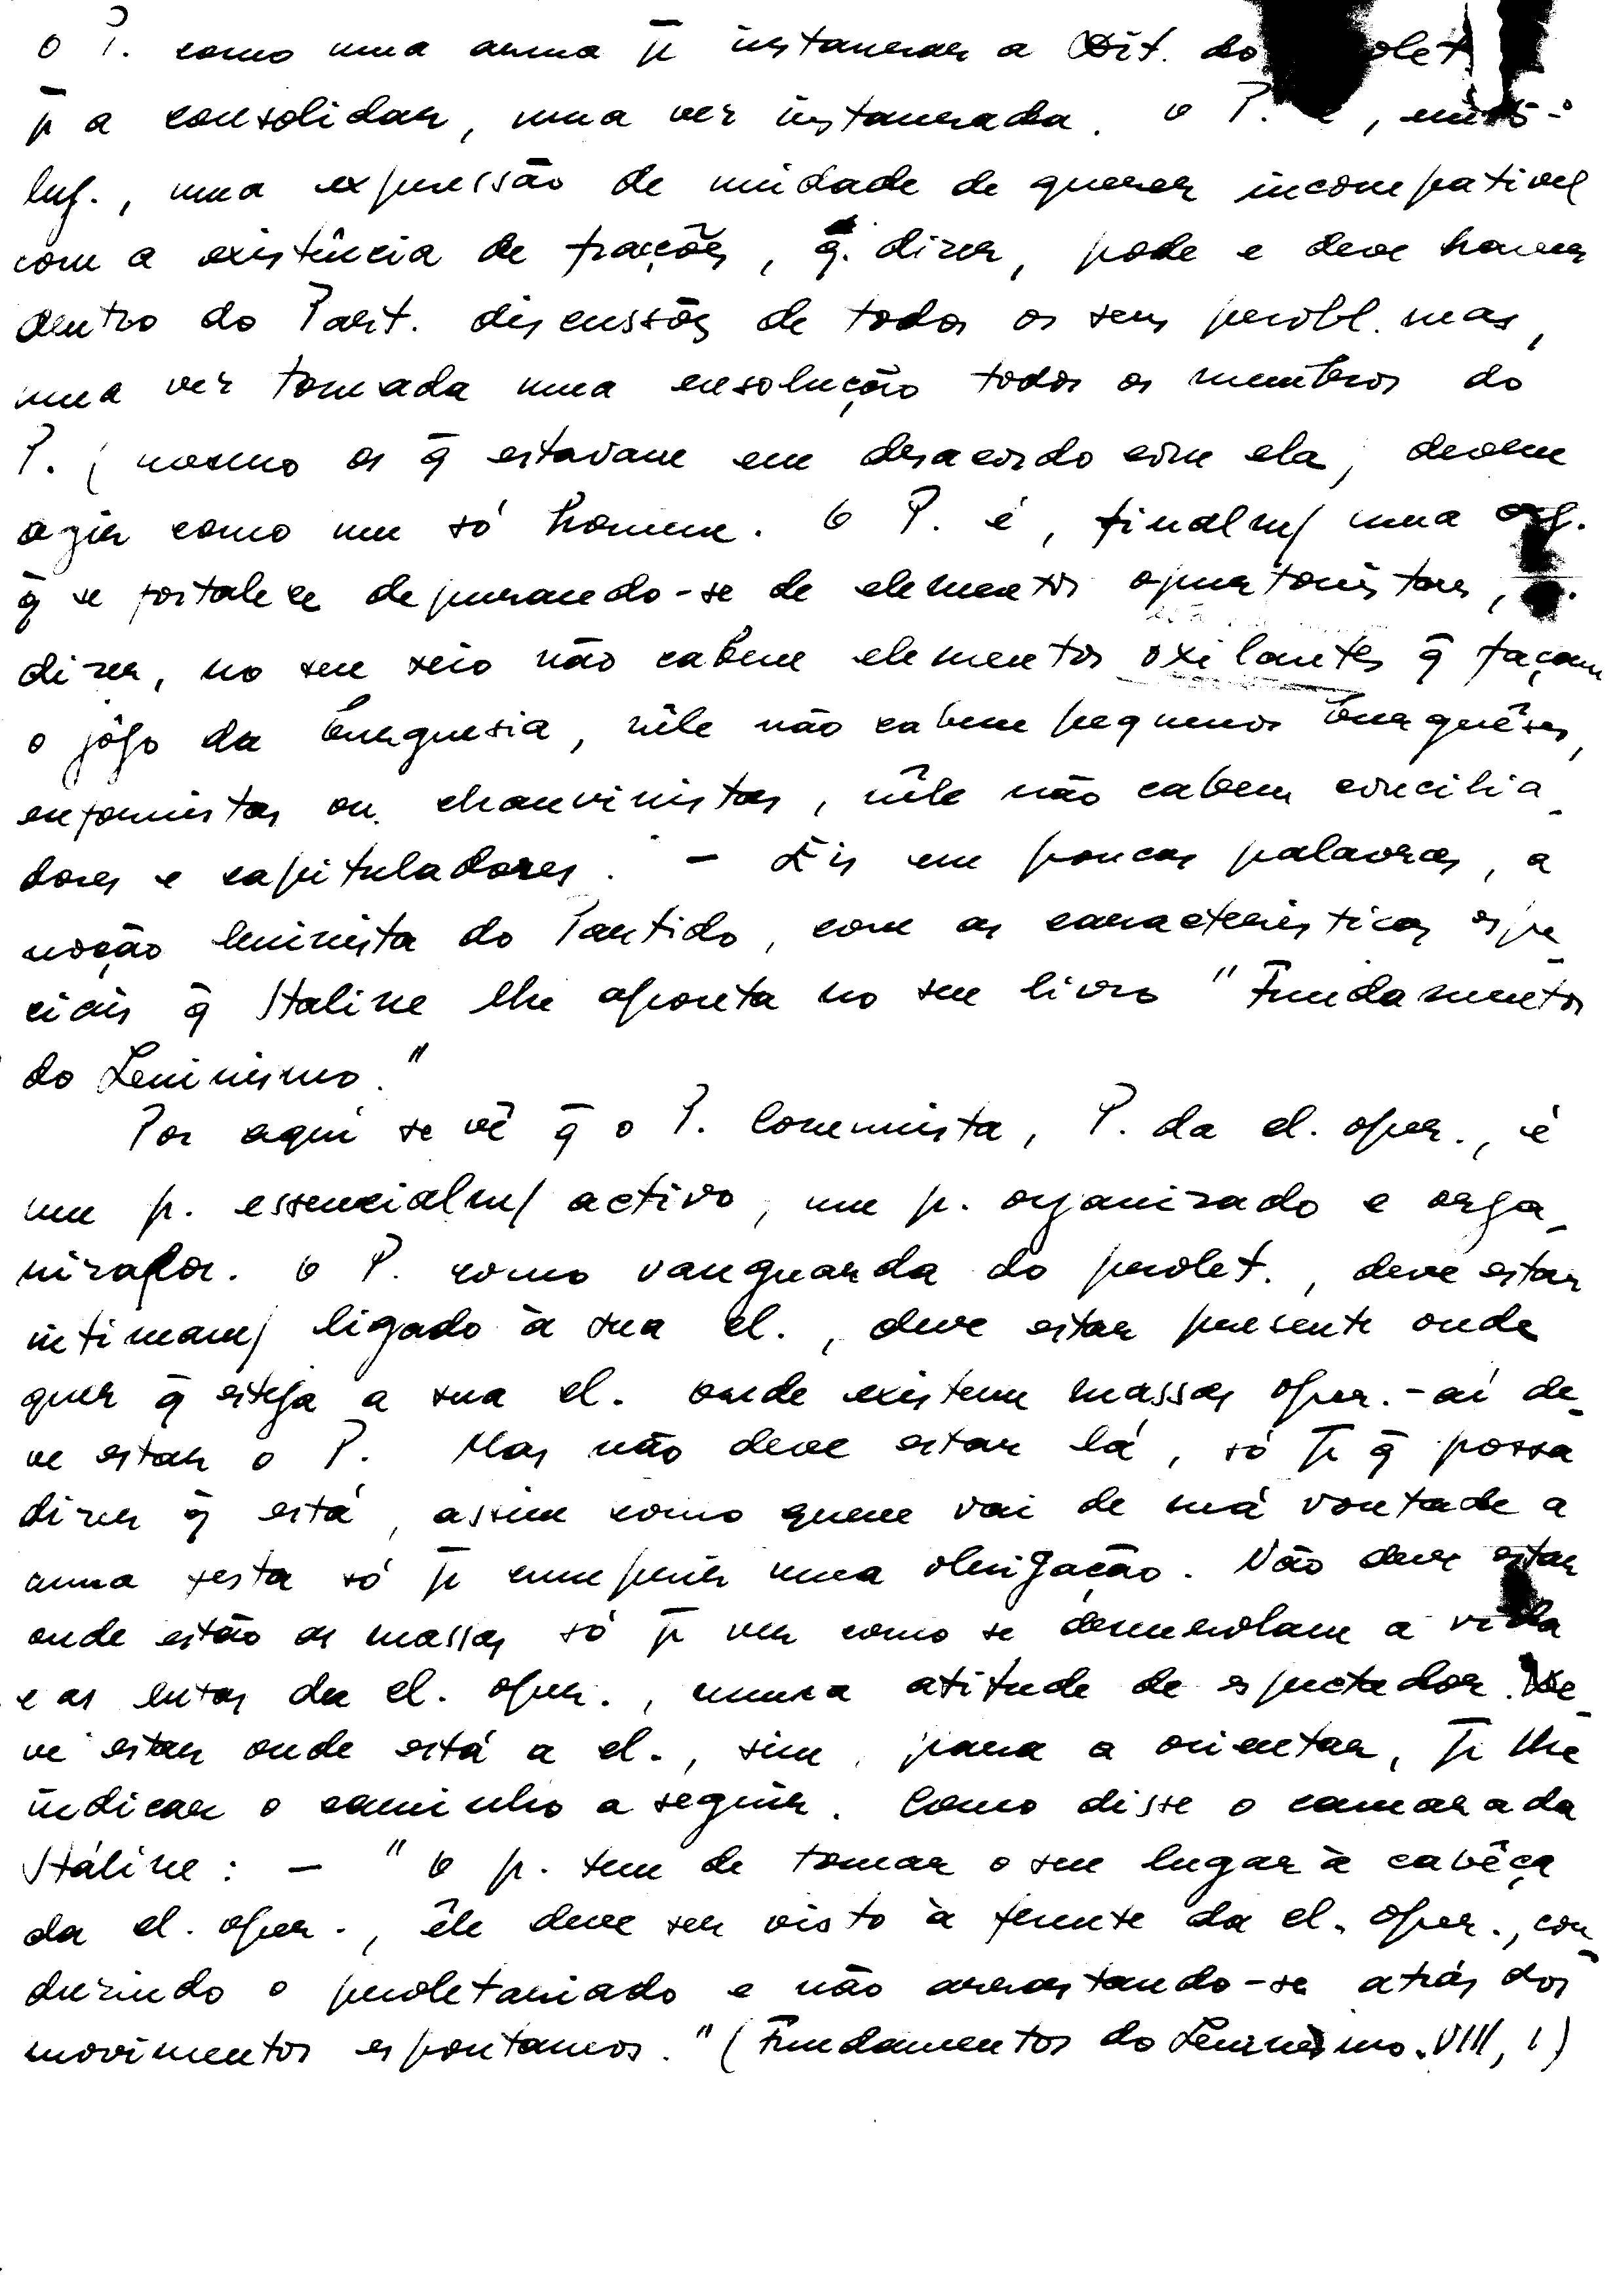 o P. como uma arma p̄ instaurar a Dit. do prolet.
p̄ a consolidar, uma vez instaurada. o P. é, em 5º
lug., uma expressão de unidade de querer incompativel
com a existência de frações, q. dizer, pode e deve haver
dentro do Part. discussões de todos os seus probl. mas,
uma vez tomada uma resolução todos os membros do
P. (mesmo os q̄ estavam em desacordo com ela, devem
agir como um só homem. O P. é, finalm/ uma org.
q̄ se fortalece depurando-se de elementos oportunistas, q.
dizer, no seu seio não cabem elementos oxilantes q̄ façam
o jôgo da burguesia, nêle não cabem pequenos burguêses,
reformistas ou chauvinistas, nêle não cabem concilia-
dores e capituladores. - Eis em poucas palavras, a
noção leninista do Partido, com as caracteristicas espe-
ciais q̄ Staline lhe aponta no seu livro "Fundamentos
do Leninismo."
Por aqui se vê q̄ o P. Comunista, P. da cl. oper., é
um p. essencialm/ activo, um p. organizado e orga-
nizador. O P. como vanguarda do prolet., deve estar
intimam/ ligado à sua cl., deve estar presente onde
quer q̄ esteja a sua cl. onde existem massas oper. - aí de-
ve estar o P. Mas não deve estar lá, só p̄ q̄ possa
dizer q̄ está, assim como quem vai de má vontade a
uma festa só p̄ cumprir uma obrigação. Não deve estar
onde estão as massas só p̄ ver como se desenrolam a vida
e as lutas da cl. oper., numa atitude de espectador. De-
ve estar onde está a cl., sim, para a orientar, p̄ lhe
indicar o caminho a seguir. Como disse o camarada
Stáline: - "O p. tem de tomar o seu lugar à cabêça
da cl. oper., êle deve ser visto à frente da cl. oper., con-
duzindo o proletariado e não arrastando-se atrás dos
movimentos espontaneos." (Fundamentos do Leninismo. VIII, 1)